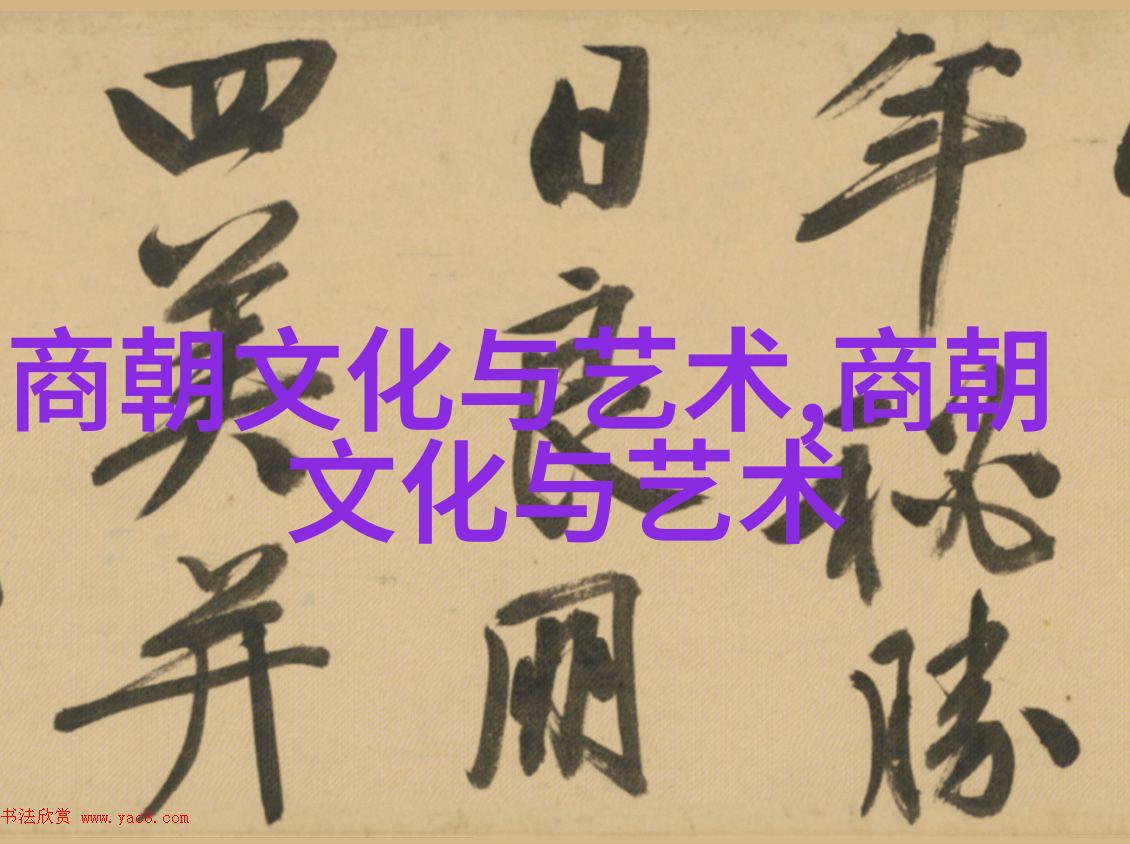 年 勝
日良朋
四美并
商朝文化与艺术,商朝
文化与艺术
书法欣赏 www.yac8.com